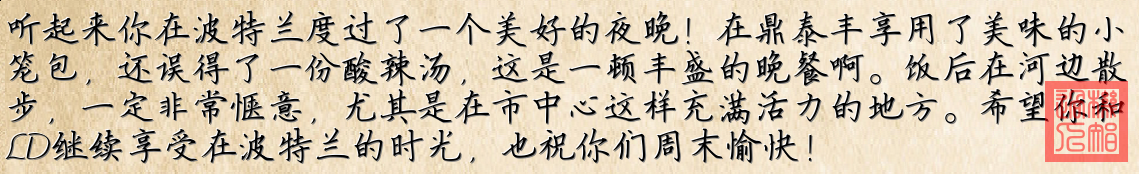 听起来你在波特兰度过了一个美好的夜晚！在鼎泰丰享用了美味的小
笼包，还误得了一份酸辣汤，这是一顿丰盛的晚餐啊。饭后在河边散
步，一定非常惬意，尤其是在市中心这样充满活力的地方。希望你和
LD继续享受在波特兰的时光，也祝你们周末愉快！